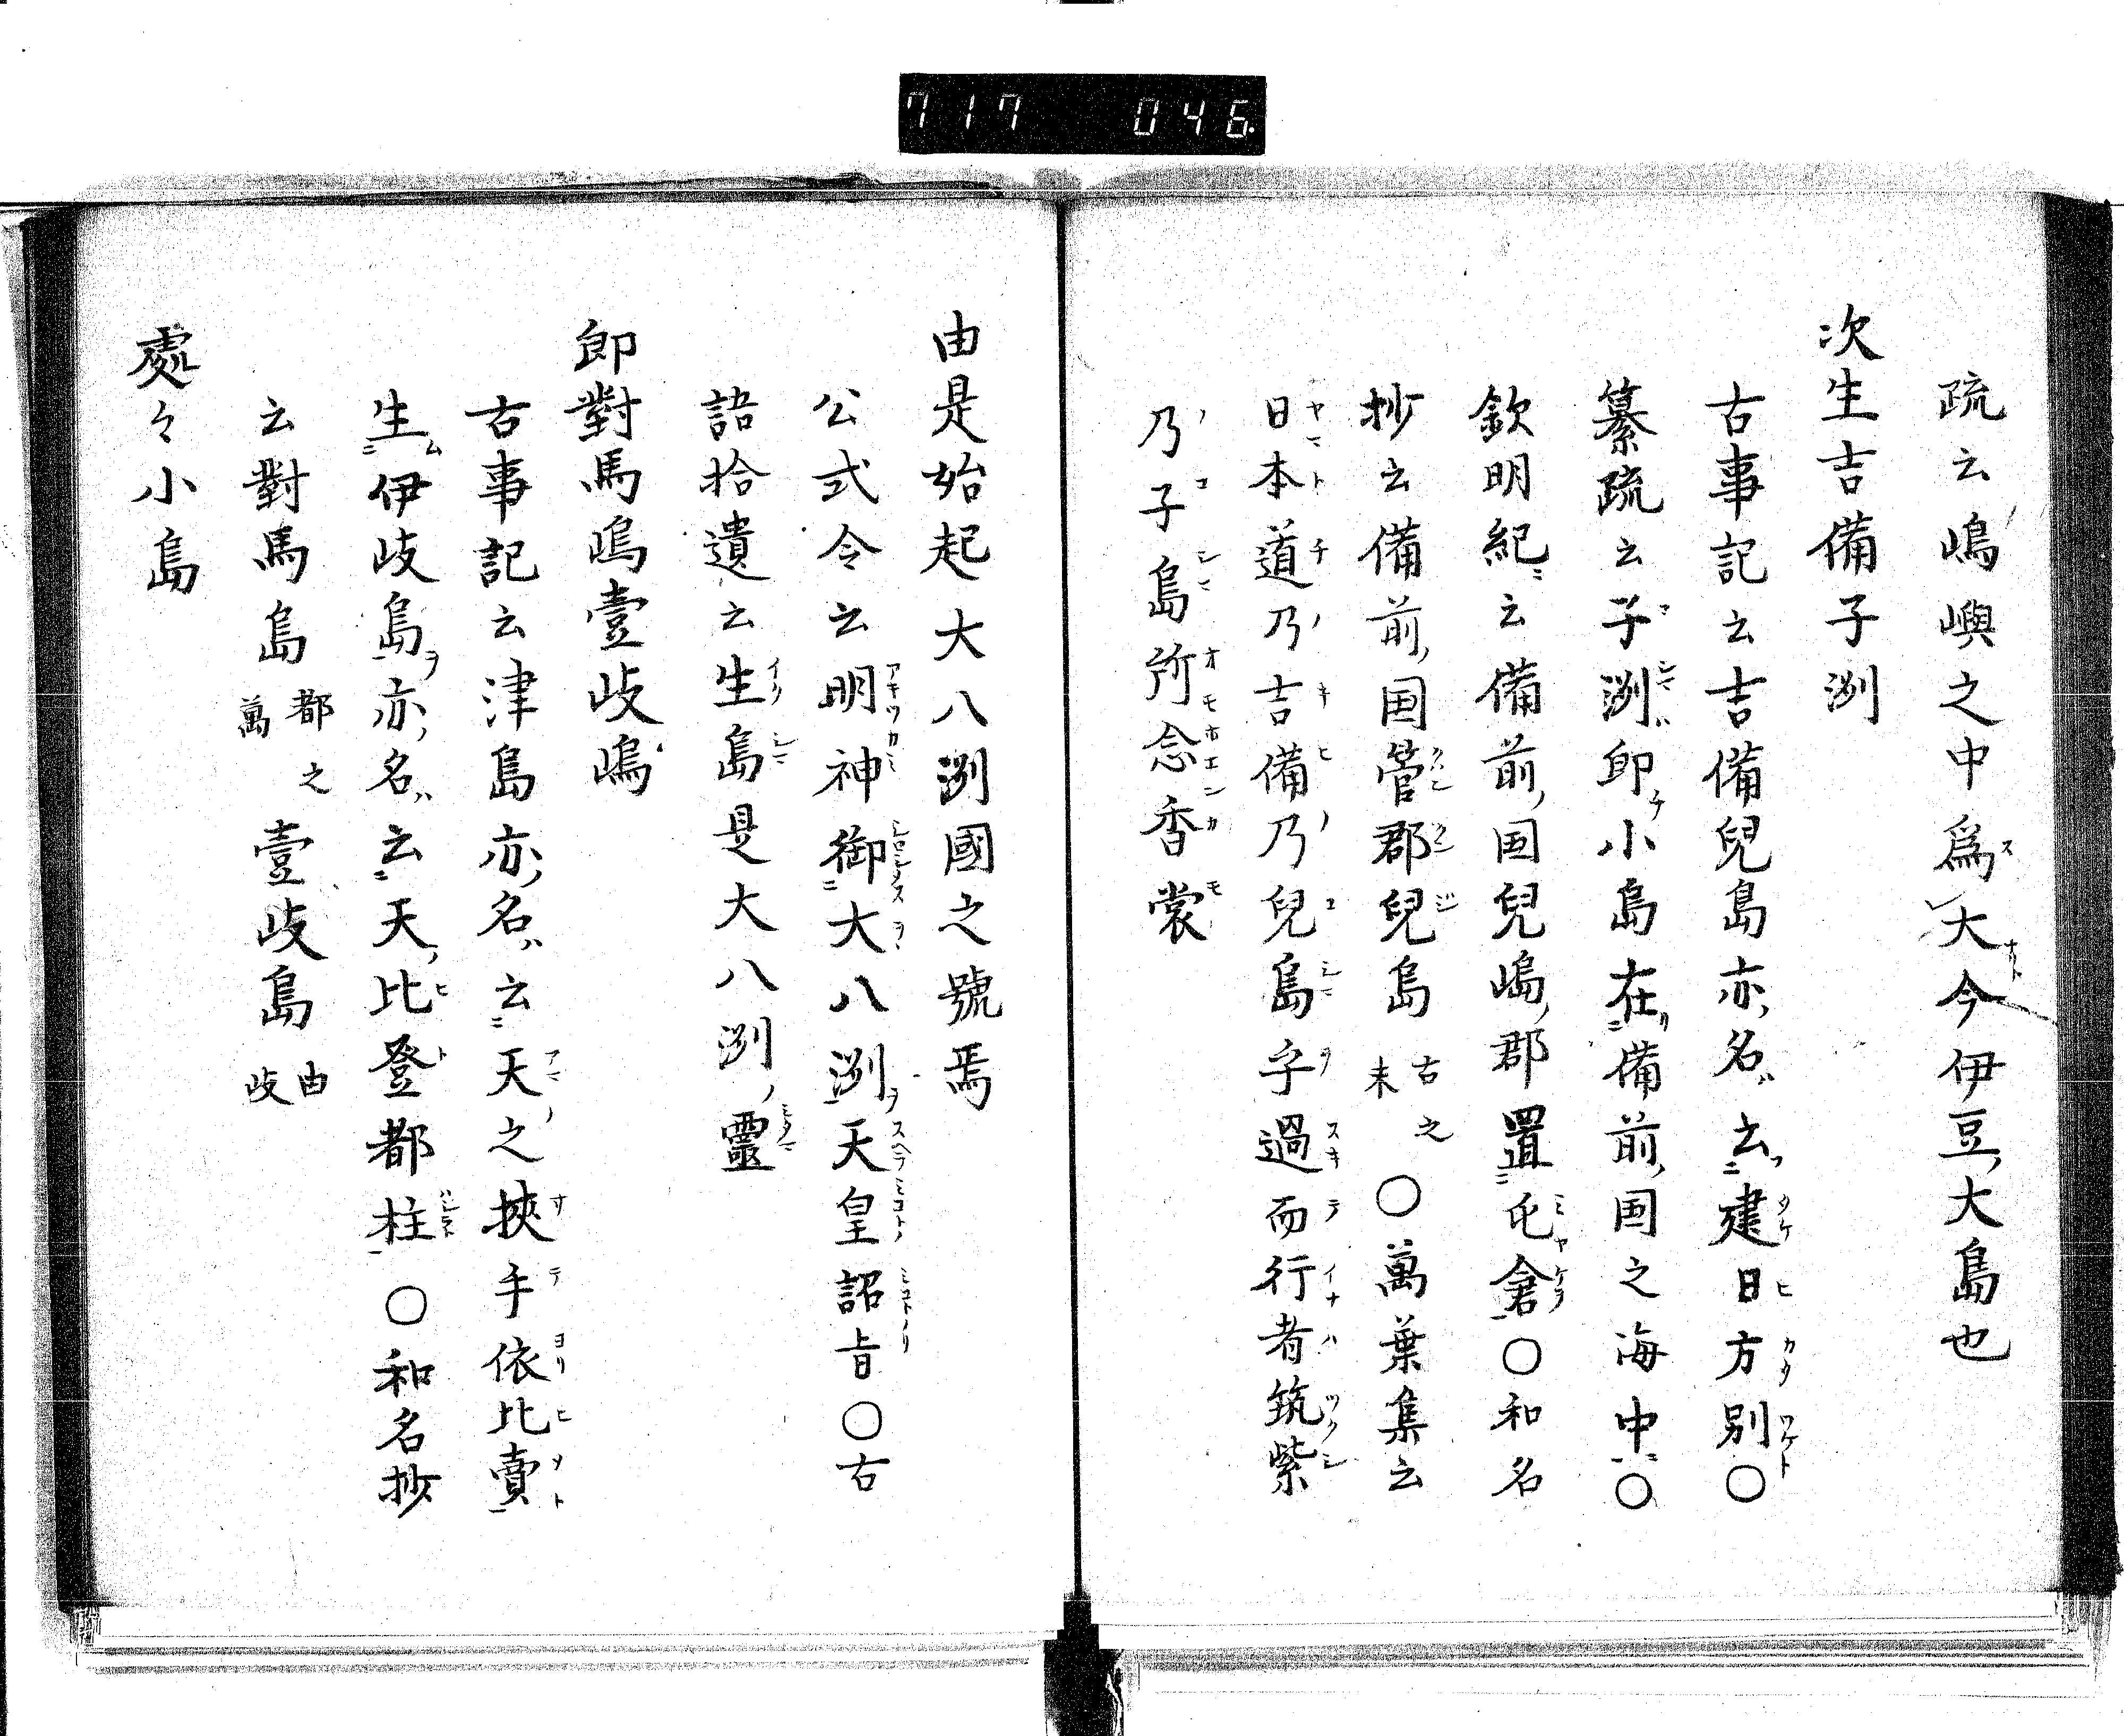 717 046
疏云嶋嶼之中爲大今伊豆大島也
次生吉備子洲
古事記云吉備兒島亦名云建日方別〇
纂疏云子洲卽小島在備前国之海中〇
欽明紀云備前国兒嶋郡置屯倉〇和名
抄云備前国管郡兒島古之末〇萬葉集云
日本道乃吉備乃兒島乎過而行者筑紫
乃子島所念香裳
由是始起大八洲國之號焉
公式令云明神御大八洲天皇詔旨〇古
語拾遺云生島是大八洲靈
卽對馬嶋壹岐嶋
古事記云津島亦名云天之挾手依比賣
生伊岐島亦名云天比登都柱〇和名抄
云對馬島都之萬壹岐島由岐
處々小島